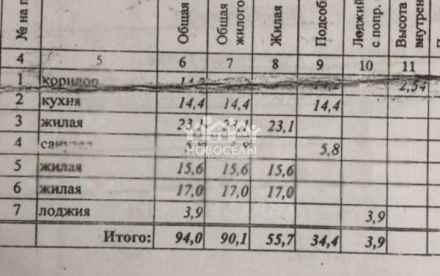 № на п
Общая
Общая
жилого
Жилая
Подсоб
Лоджий
с попр.
Высота
внутрен
4 5 6 7 8 9 10 11
1 коридор 2,54
2 кухня 14,4 14,4 14,4
3 жилая 23,1 23,1
4 5,8
5 жилая 15,6 15,6 15,6
6 жилая 17,0 17,0 17,0
7 лоджия 3,9 3,9
Итого: 94,0 90,1 55,7 34,4 3,9
НОВОСЕЛЫ